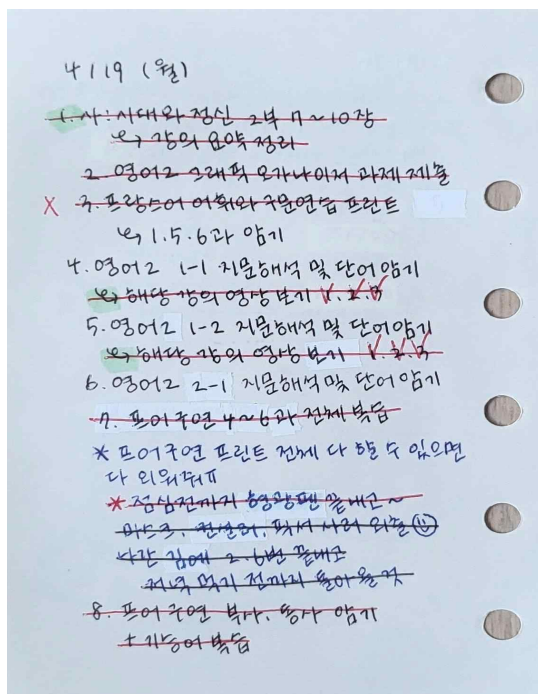 4/19 (월)
1. 사: 시대와 정신 2부 7~10장
↳ 강의 요약 정리
2. 영어2 그래픽 오가나이저 과제 제출
X 3. 프랑스어 어휘와 구문연습 프린트
↳ 1.5.6과 암기
4. 영어2 1-1 지문해석 및 단어암기
↳ 해당 강의 영상 보기 1.2.3
5. 영어2 1-2 지문해석 및 단어암기
↳ 해당 강의 영상 보기 1.2.3
6. 영어2 2-1 지문해석 및 단어 암기
7. 프어구연 4~6과 전체 복습
* 프어구연 프린트 전체 다 할 수 있으면
다 외워줘ㅠ
* 점심전까지 형광펜 끝내고~
마스크, 컨실러, 픽서 사러 외출
나간 김에 2.6번 끝내고
저녁 먹기 전까지 돌아올 것
8. 프어구연 부사, 동사 암기
+ 기능어 복습